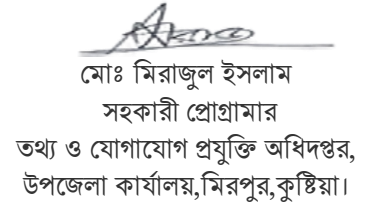 মোঃ মিরাজুল ইসলাম
সহকারী প্রোগ্রামার
তথ্য ও যোগাযোগ প্রযুক্তি অধিদপ্তর,
উপজেলা কার্যালয়,মিরপুর,কুষ্টিয়া।